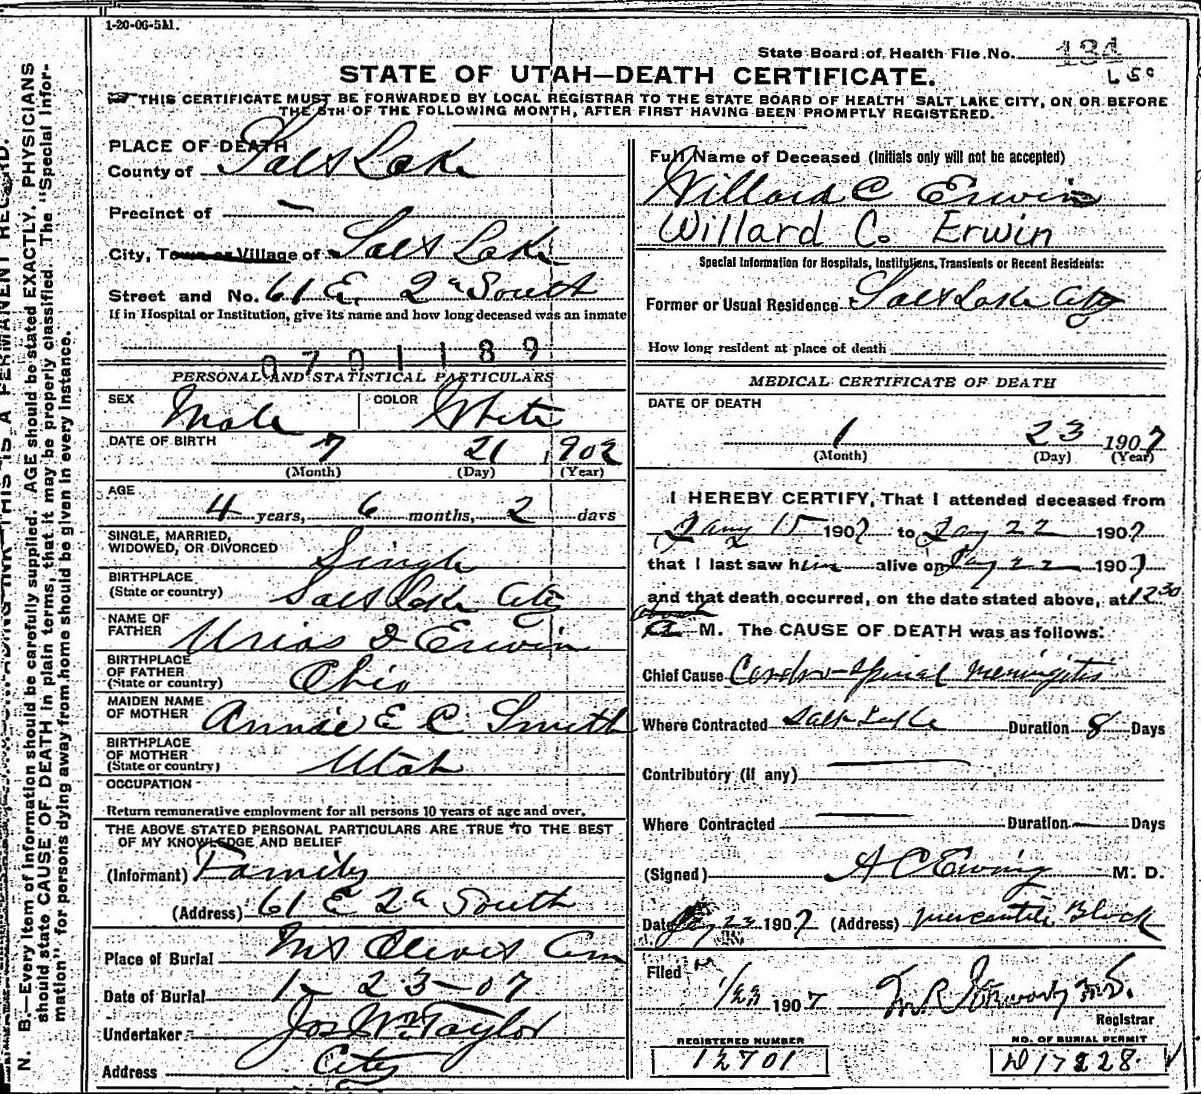 1-20-06-5M.
State Board of Health File No. 134
L 50
STATE OF UTAH—DEATH CERTIFICATE.
THIS CERTIFICATE MUST BE FORWARDED BY LOCAL REGISTRAR TO THE STATE BOARD OF HEALTH SALT LAKE CITY, ON OR BEFORE
THE 5TH OF THE FOLLOWING MONTH, AFTER FIRST HAVING BEEN PROMPTLY REGISTERED.
PLACE OF DEATH
County of Salt Lake
Precinct of —
City, Town or Village of Salt Lake
Street and No. 61 E. 2d South
If in Hospital or Institution, give its name and how long deceased was an inmate
0701189
PERSONAL AND STATISTICAL PARTICULARS
SEX Male COLOR White
DATE OF BIRTH 7 21 1902
(Month) (Day) (Year)
AGE
4 years, 6 months, 2 days
SINGLE, MARRIED,
WIDOWED, OR DIVORCED Single
BIRTHPLACE
(State or country) Salt Lake City
NAME OF
FATHER Urias D Erwin
BIRTHPLACE
OF FATHER
(State or country) Ohio
MAIDEN NAME
OF MOTHER Annie E C Smith
BIRTHPLACE
OF MOTHER
(State or country) Utah
OCCUPATION
Return remunerative employment for all persons 10 years of age and over.
THE ABOVE STATED PERSONAL PARTICULARS ARE TRUE TO THE BEST
OF MY KNOWLEDGE AND BELIEF
(Informant) Family
(Address) 61 E 2d South
Place of Burial Mt Olivet Cem
Date of Burial 1-23-07
Undertaker Jos Wm Taylor
Address City
Full Name of Deceased (Initials only will not be accepted)
Willard C Erwin
Willard C. Erwin
Special Information for Hospitals, Institutions, Transients or Recent Residents:
Former or Usual Residence Salt Lake City
How long resident at place of death
MEDICAL CERTIFICATE OF DEATH
DATE OF DEATH
1 23 1907
(Month) (Day) (Year)
I HEREBY CERTIFY, That I attended deceased from
Jany 15 1907 to Jany 22 1907
that I last saw him alive on Jany 22 1907
and that death occurred, on the date stated above, at 12 30
a M. The CAUSE OF DEATH was as follows:
Chief Cause Cerebro-spinal meningitis
Where Contracted Salt Lake Duration 8 Days
Contributory (if any) —
Where Contracted — Duration — Days
(Signed) A C Ewing M. D.
Date Jany 23 1907 (Address) Mercantile Block
Filed 1/23 1907 M.D.
Registrar
REGISTERED NUMBER NO. OF BURIAL PERMIT
12701 D17228
N. B.—Every item of information should be carefully supplied. AGE should be stated EXACTLY. PHYSICIANS
should state CAUSE OF DEATH in plain terms, that it may be properly classified. The "Special Infor-
mation" for persons dying away from home should be given in every instance.
THIS IS A PERMANENT RECORD.